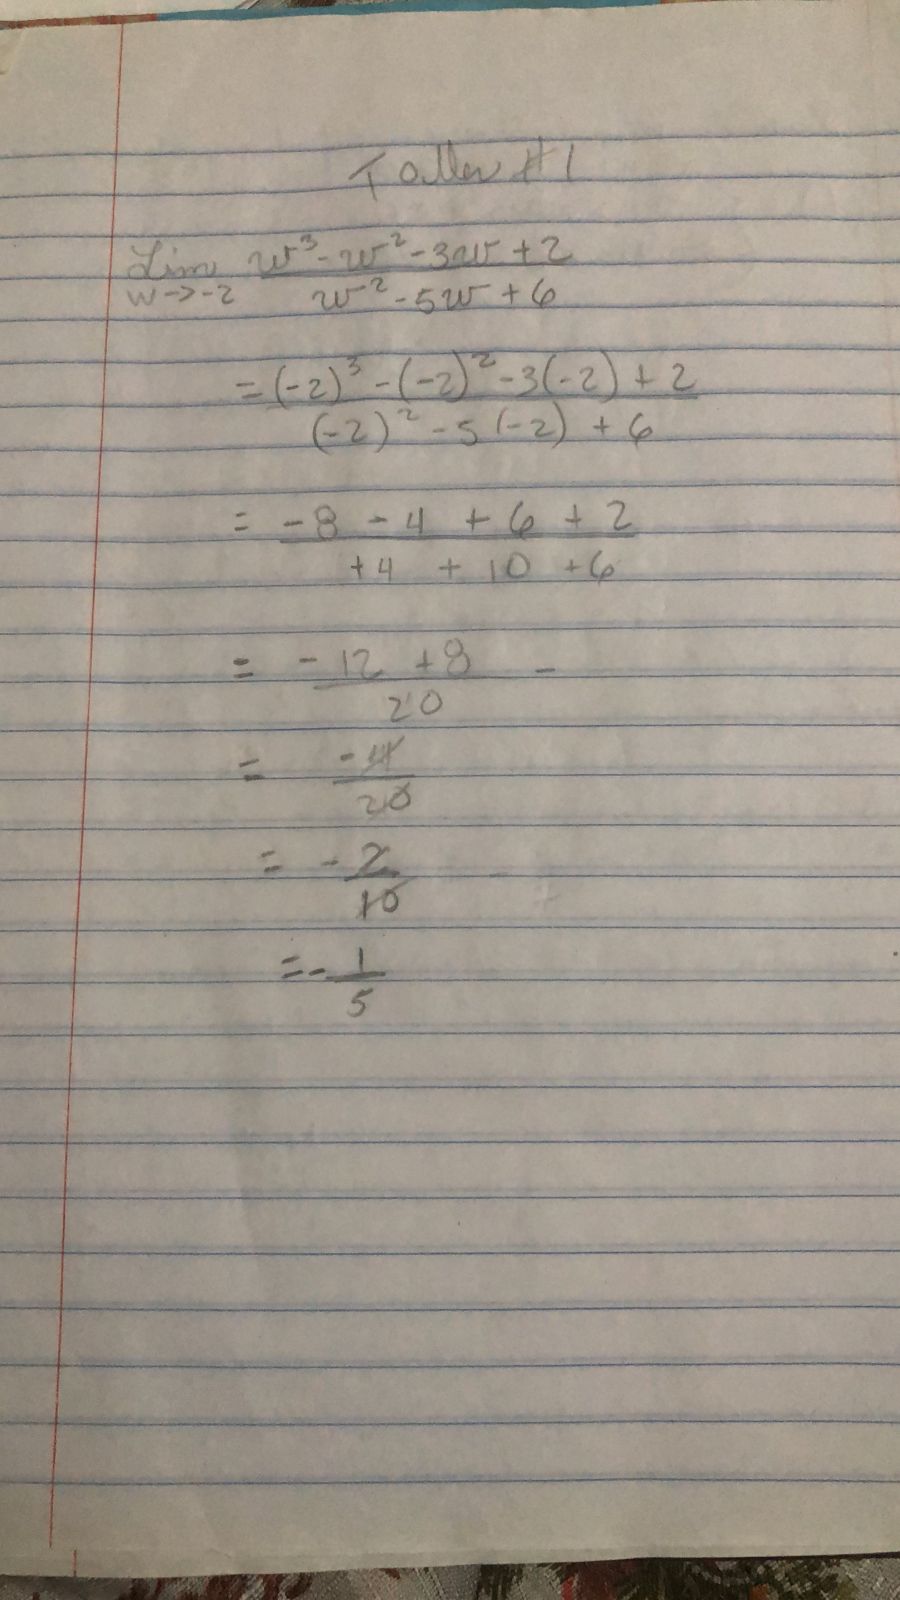 Taller #1
Lim w³-w²-3w+2
w->-2 w²-5w+6
=(-2)³-(-2)²-3(-2)+2
(-2)²-5(-2)+6
= -8 - 4 + 6 + 2
+4 + 10 +6
= -12 +8 -
20
= -4
20
= -2
10
=-1
5